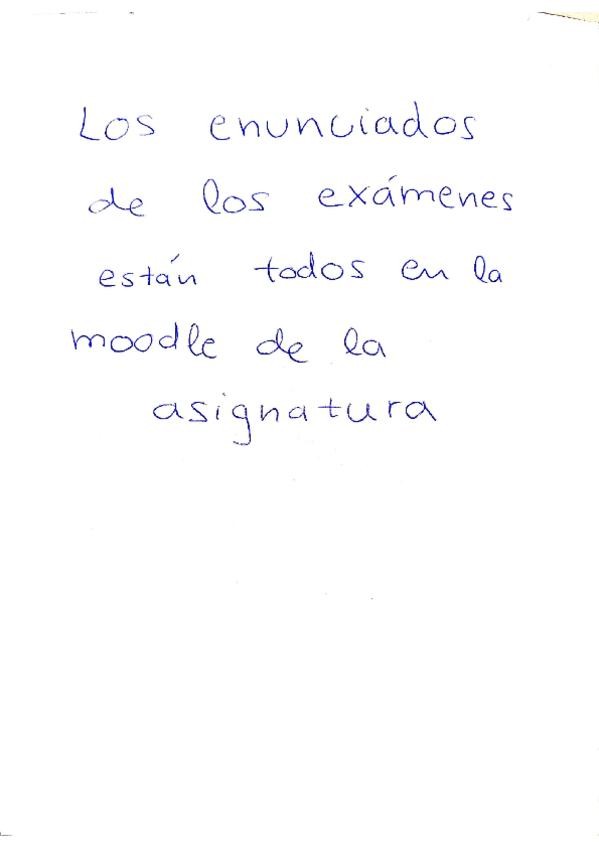 Los enunciados
de los exámenes
están todos en la
moodle de la
asignatura